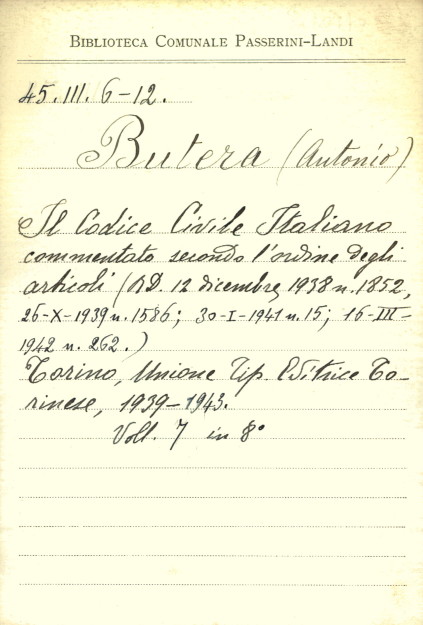 BIBLIOTECA COMUNALE PASSERINI-LANDI
45. III. 6-12.
Butera (Antonio)
Il Codice Civile Italiano
commentato secondo l'ordine degli
articoli (RD. 12 dicembre, 1938 n. 1852,
26-X-1939 n. 1586; 30-I-1941 n. 15; 16-III-
1942 n. 262.)
Torino, Unione Tip. Editrice To-
rinese, 1939-1943.
Voll. 7 in 8°